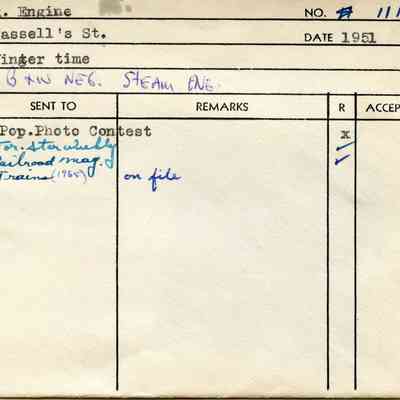 . Engine NO. # 111
assell's St. DATE 1951
inter time
B & W NEG. STEAM ENG.
SENT TO REMARKS R ACCEP
Pop.Photo Contest x
Tor. Star weekly ✓
Railroad mag. ✓
Trains (1955) on file